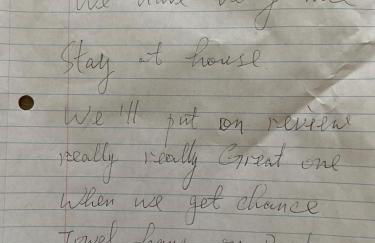 We have very
Stay at house
We'll put on review
really really Great one
When we get chance
Towel